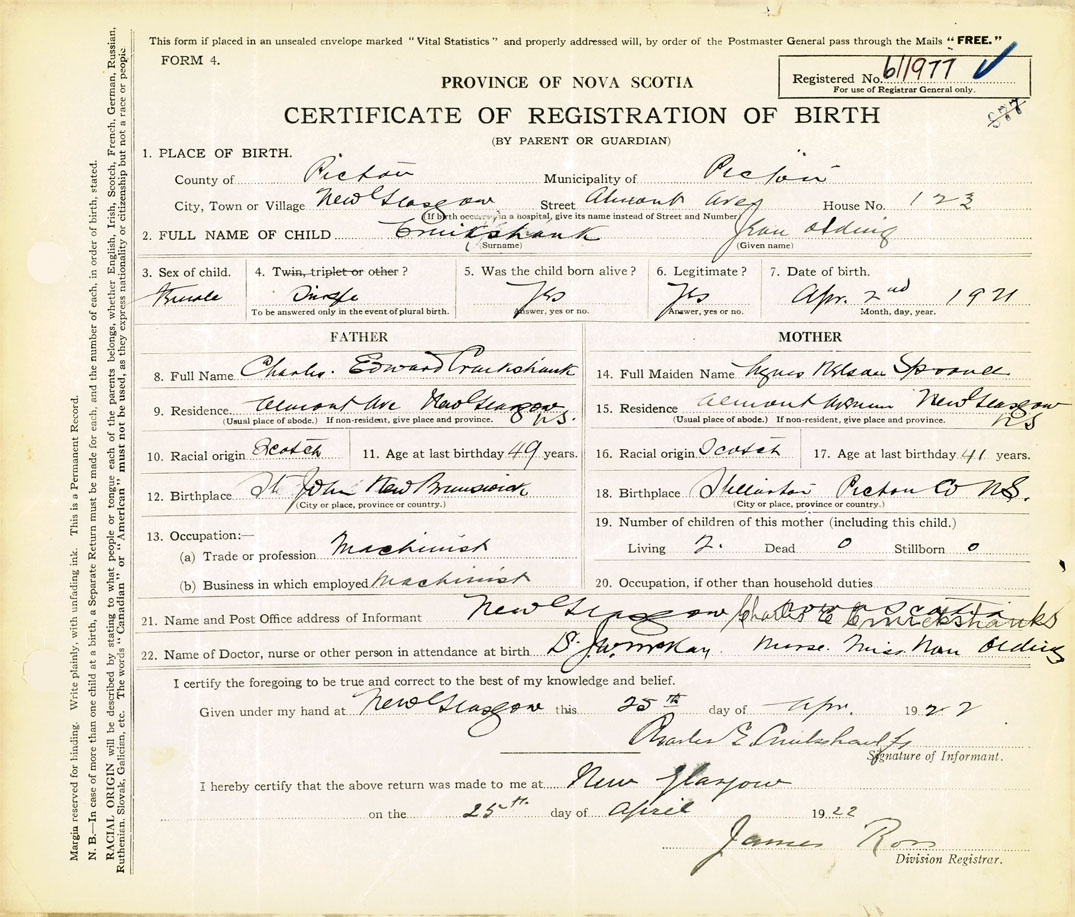 This form if placed in an unsealed envelope marked "Vital Statistics" and properly addressed will, by order of the Postmaster General pass through the Mails "FREE."
FORM 4.
Registered No. 611977 ✓
For use of Registrar General only.
PROVINCE OF NOVA SCOTIA
CERTIFICATE OF REGISTRATION OF BIRTH
(BY PARENT OR GUARDIAN)
1. PLACE OF BIRTH.
County of Pictou Municipality of Pictou
City, Town or Village New Glasgow Street Almont Ave House No. 123
(If birth occurs in a hospital, give its name instead of Street and Number)
2. FULL NAME OF CHILD Cruikshank Jean Olding
(Surname) (Given name)
3. Sex of child. 4. Twin, triplet or other? 5. Was the child born alive? 6. Legitimate? 7. Date of birth.
Female Single Yes Yes Apr. 2nd 1921
To be answered only in the event of plural birth. Answer, yes or no. Answer, yes or no. Month, day, year.
FATHER
8. Full Name Charles Edward Cruikshank
9. Residence Almont Ave New Glasgow N.S.
(Usual place of abode.) If non-resident, give place and province.
10. Racial origin Scotch 11. Age at last birthday 49 years.
12. Birthplace St. John New Brunswick
(City or place, province or country.)
13. Occupation:—
(a) Trade or profession Machinist
(b) Business in which employed Machinist
MOTHER
14. Full Maiden Name Agnes Nelson
15. Residence Almont Avenue New Glasgow NS
(Usual place of abode.) If non-resident, give place and province.
16. Racial origin Scotch 17. Age at last birthday 41 years.
18. Birthplace Stellarton Pictou Co N.S.
(City or place, province or country.)
19. Number of children of this mother (including this child.)
Living 2. Dead 0 Stillborn 0
20. Occupation, if other than household duties
21. Name and Post Office address of Informant New Glasgow Nova Scotia Charles E Cruickshanks
22. Name of Doctor, nurse or other person in attendance at birth McKay. Nurse. Miss. Nan Olding
I certify the foregoing to be true and correct to the best of my knowledge and belief.
Given under my hand at New Glasgow this 25th day of Apr. 1922
Charles E Cruikshank
Signature of Informant.
I hereby certify that the above return was made to me at New Glasgow
on the 25th day of April 1922
James Ross
Division Registrar.
Margin reserved for binding. Write plainly, with unfading ink. This is a Permanent Record.
N. B.—In case of more than one child at a birth, a Separate Return must be made for each, and the number of each, in order of birth, stated.
RACIAL ORIGIN will be described by stating to what people or tongue each of the parents belongs, whether English, Irish, Scotch, French, German, Russian,
Ruthenian, Slovak, Galician, etc. The words "Canadian" or "American" must not be used, as they express nationality or citizenship but not a race or people.